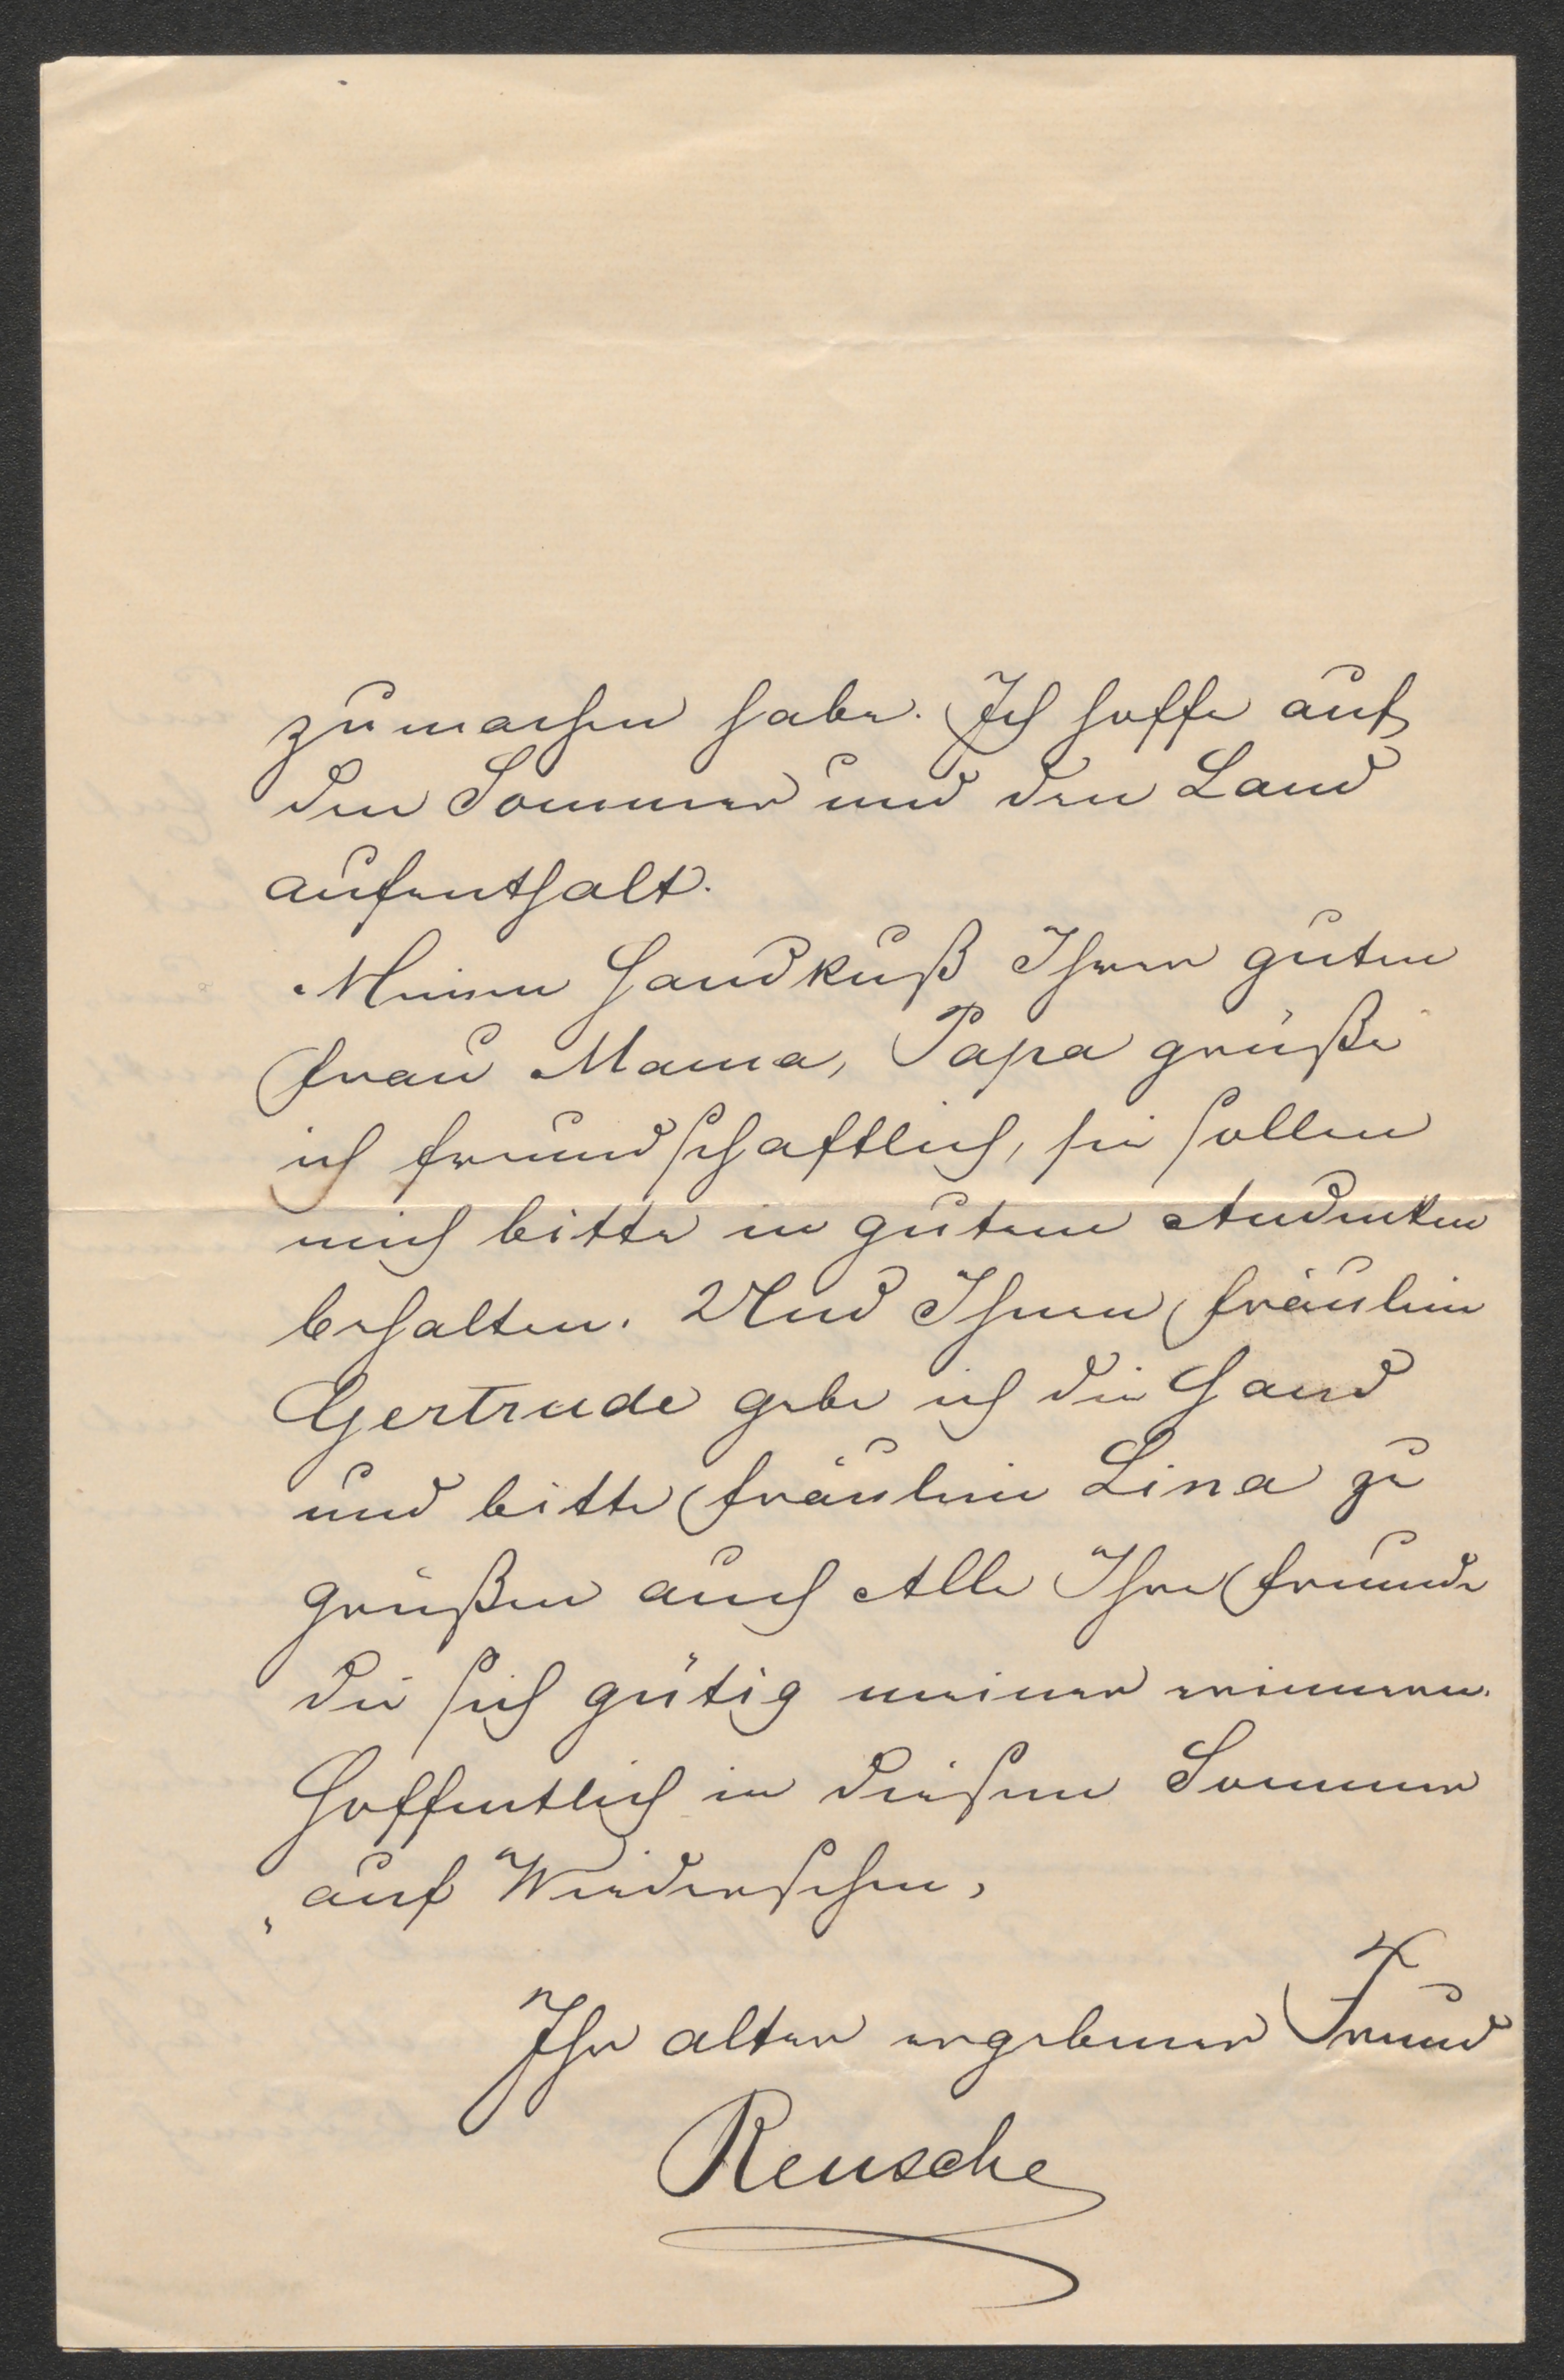 zumachen habe. Ich hoffe auf
den Sommer und den Land
aufenthalt.
Meinen Handkuß Ihrer guten
Frau Mama, Papa grüße
ich freundschaftlich, sie sollen
mich bitte in gutem Andenken
behalten. Und Ihnen Fräulein
Gertrude gebe ich die Hand
und bitte Fräulein Lina zu
grüßen auch Alle Ihre Freunde
die sich gütig meiner erinnern.
Hoffentlich in diesem Sommer
auf Wiedersehen,
Ihr alter ergebener Freund
Reusche